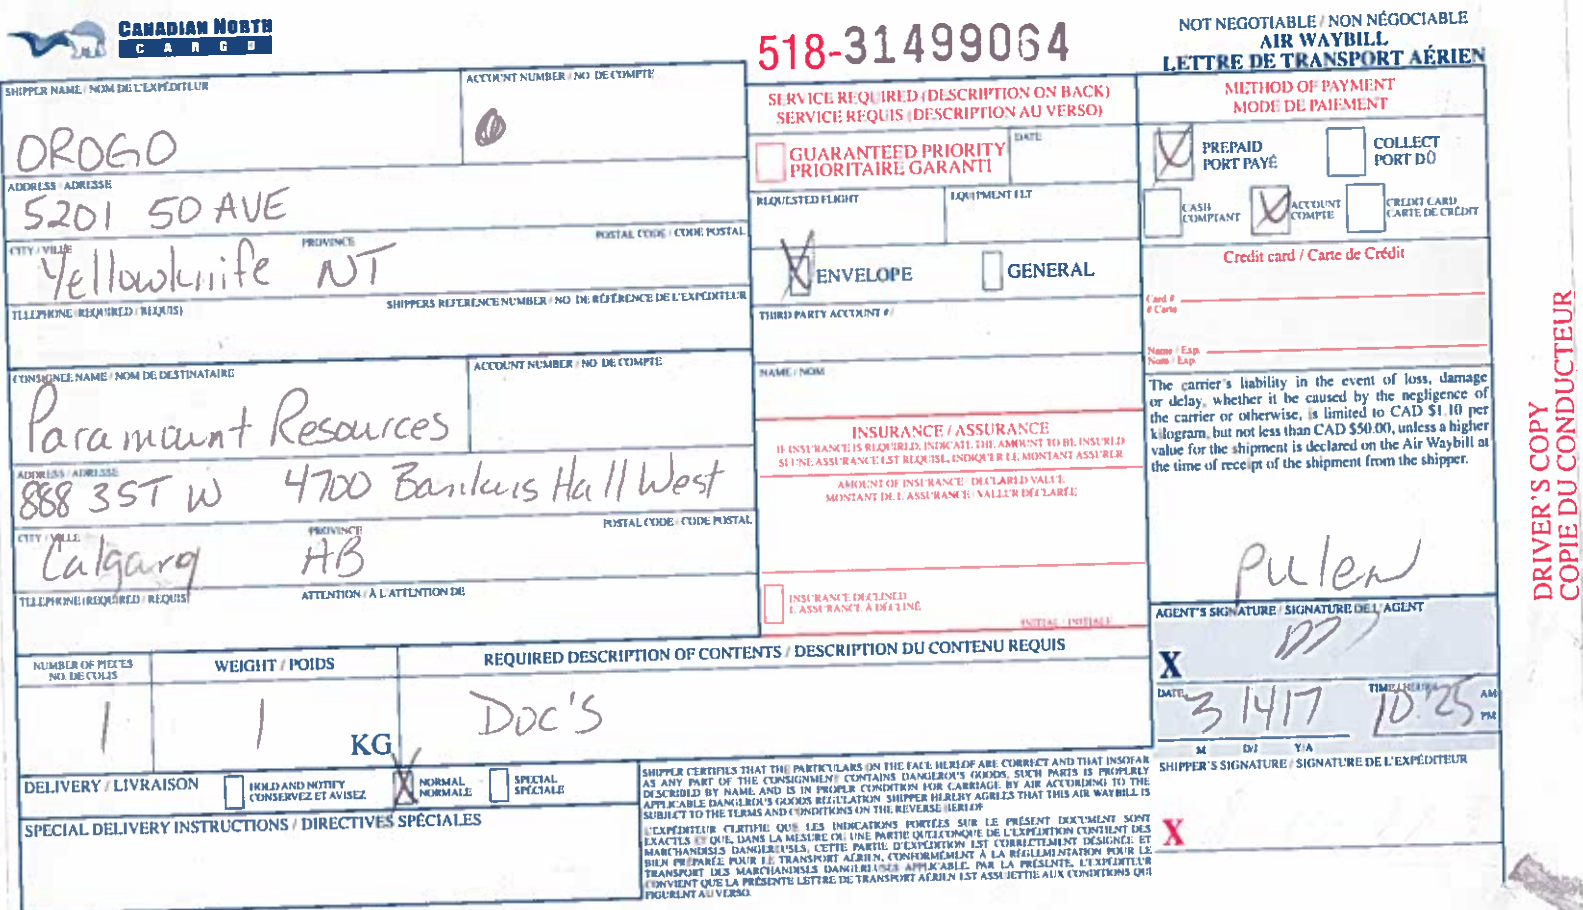 CANADIAN NORTH
CARGO
518-31499064
NOT NEGOTIABLE / NON NÉGOCIABLE
AIR WAYBILL
LETTRE DE TRANSPORT AÉRIEN
SHIPPER NAME / NOM DE L'EXPÉDITEUR
ACCOUNT NUMBER / NO. DE COMPTE
OROGO
0
ADDRESS / ADRESSE
5201 50 AVE
CITY / VILLE
PROVINCE
POSTAL CODE / CODE POSTAL
Yellowknife NT
TELEPHONE (REQUIRED / REQUIS)
SHIPPERS REFERENCE NUMBER / NO. DE RÉFÉRENCE DE L'EXPÉDITEUR
CONSIGNEE NAME / NOM DE DESTINATAIRE
ACCOUNT NUMBER / NO. DE COMPTE
Paramount Resources
ADDRESS / ADRESSE
888 3 ST W 4700 Bankers Hall West
CITY / VILLE
PROVINCE
POSTAL CODE / CODE POSTAL
Calgary AB
TELEPHONE (REQUIRED / REQUIS)
ATTENTION / À L'ATTENTION DE
SERVICE REQUIRED (DESCRIPTION ON BACK)
SERVICE REQUIS (DESCRIPTION AU VERSO)
GUARANTEED PRIORITY
PRIORITAIRE GARANTI
DATE
REQUESTED FLIGHT
EQUIPMENT FLT
ENVELOPE
GENERAL
THIRD PARTY ACCOUNT #
NAME / NOM
INSURANCE / ASSURANCE
IF INSURANCE IS REQUIRED, INDICATE THE AMOUNT TO BE INSURED
SI UNE ASSURANCE EST REQUISE, INDIQUER LE MONTANT ASSURER
AMOUNT OF INSURANCE / DECLARED VALUE
MONTANT DE L'ASSURANCE / VALEUR DÉCLARÉE
INSURANCE DECLINED
L'ASSURANCE A DÉCLINÉ
INITIAL / INITIALE
METHOD OF PAYMENT
MODE DE PAIEMENT
PREPAID
PORT PAYÉ
COLLECT
PORT DÛ
CASH
COMPTANT
ACCOUNT
COMPTE
CREDIT CARD
CARTE DE CRÉDIT
Credit card / Carte de Crédit
Card #
# Carte
Name / Exp.
Nom / Exp.
The carrier's liability in the event of loss, damage
or delay, whether it be caused by the negligence of
the carrier or otherwise, is limited to CAD $1.10 per
kilogram, but not less than CAD $50.00, unless a higher
value for the shipment is declared on the Air Waybill at
the time of receipt of the shipment from the shipper.
AGENT'S SIGNATURE / SIGNATURE DE L'AGENT
X
DATE
3 14 17
TIME / HEURE
10:25
AM
PM
M D/J Y/A
SHIPPER'S SIGNATURE / SIGNATURE DE L'EXPÉDITEUR
X
NUMBER OF PIECES
NO. DE COLIS
WEIGHT / POIDS
REQUIRED DESCRIPTION OF CONTENTS / DESCRIPTION DU CONTENU REQUIS
1
1
KG
Doc's
DELIVERY / LIVRAISON
HOLD AND NOTIFY
CONSERVEZ ET AVISEZ
NORMAL
NORMALE
SPECIAL
SPÉCIALE
SPECIAL DELIVERY INSTRUCTIONS / DIRECTIVES SPÉCIALES
SHIPPER CERTIFIES THAT THE PARTICULARS ON THE FACE HEREOF ARE CORRECT AND THAT INSOFAR
AS ANY PART OF THE CONSIGNMENT CONTAINS DANGEROUS GOODS, SUCH PARTS IS PROPERLY
DESCRIBED BY NAME AND IS IN PROPER CONDITION FOR CARRIAGE BY AIR ACCORDING TO THE
APPLICABLE DANGEROUS GOODS REGULATION SHIPPER HEREBY AGREES THAT THIS AIR WAYBILL IS
SUBJECT TO THE TERMS AND CONDITIONS ON THE REVERSE HEREOF
L'EXPÉDITEUR CERTIFIE QUE LES INDICATIONS PORTÉES SUR LE PRÉSENT DOCUMENT SONT
EXACTES ET QUE, DANS LA MESURE OU UNE PARTIE QUELCONQUE DE L'EXPÉDITION CONTIENT DES
MARCHANDISES DANGEREUSES, CETTE PARTIE D'EXPÉDITION EST CORRECTEMENT DÉSIGNÉE ET
BIEN PRÉPARÉE POUR LE TRANSPORT AÉRIEN, CONFORMÉMENT À LA RÉGLEMENTATION POUR LE
TRANSPORT DES MARCHANDISES DANGEREUSES APPLICABLE. PAR LA PRÉSENTE, L'EXPÉDITEUR
CONVIENT QUE LA PRÉSENTE LETTRE DE TRANSPORT AÉRIEN EST ASSUJETTIE AUX CONDITIONS QUI
FIGURENT AU VERSO.
DRIVER'S COPY
COPIE DU CONDUCTEUR